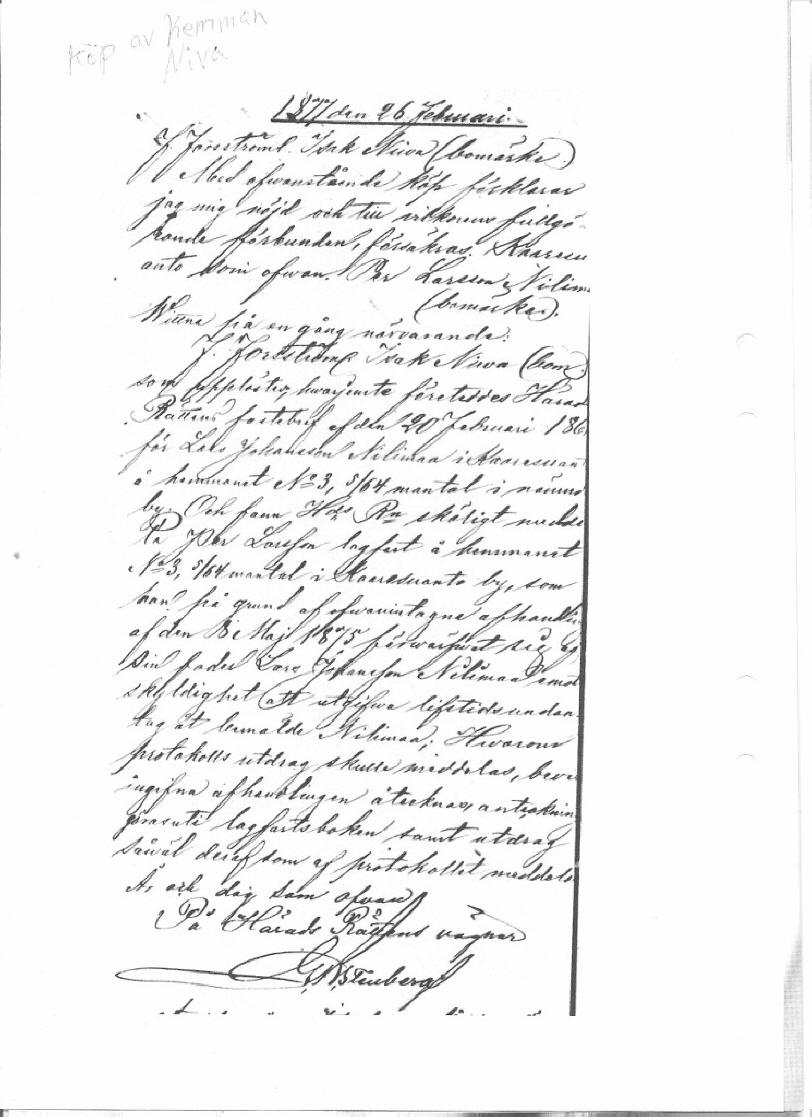 Köp av Hemman
Niva
1877 den 26 Februari.
J. Forsström. Isak Niwa (bomärke.)
Med ofwanstående köp förklarar
jag mig nöjd och till vilkorens fullgö-
rande förbunden, försäkras. Kaaresu
anto som ofwan. Per Larsson Nilima
(bomärke).
Wittna på en gång närvarande:
J. Forsström Isak Niwa (bom.
som upplästes, hwarjemte företeddes Härads
Rättens fastebref af den 20 Februari 186
för Lars Johansson Nilimaa i Kaaresuan
å hemmanet No 3, 5/64 mantal i nämnd
by. Och fann Hds Rn skäligt medde
la Per Larsson lagfart å hemmanet
No 3, 5/64 mantal i Kaaresuanto by, som
han på grund af ofwanintagne afhandlin
af den 18 Maj 1875 förwärfwat sig af
sin fader Lars Johansson Nilimaa emot
skyldighet att utgifwa lifstidsundan-
tag åt bemälde Nilimaa; Hwarom
protokolls utdrag skulle meddelas, bevis
ingifna afhandlingen åtecknas, anteckning
göras uti lagfartsboken samt utdrag
såväl deraf som af protokollet meddelas
År och dag som ofwan
På Härads Rättens vägnar
Stenberg